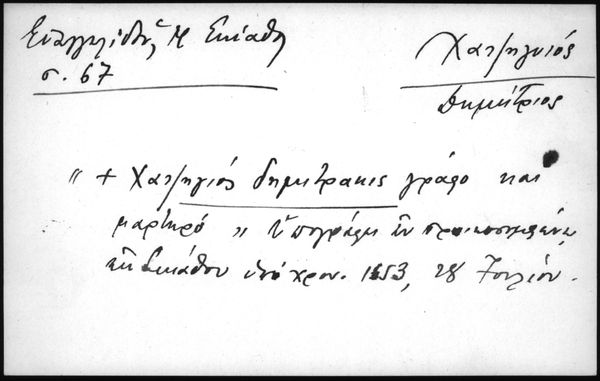 Εὐαγγελίδης Ἡ Σκιάθος
σ. 67
Χατζηγιός
Δημήτριος
" + Χατζηγιός δημιτρακις γράφο και
μαρτηρό " Ὑπογράφει ἐν
Σκιάθου ὑπό χρον. 1653, 28 Ἰουλίου.